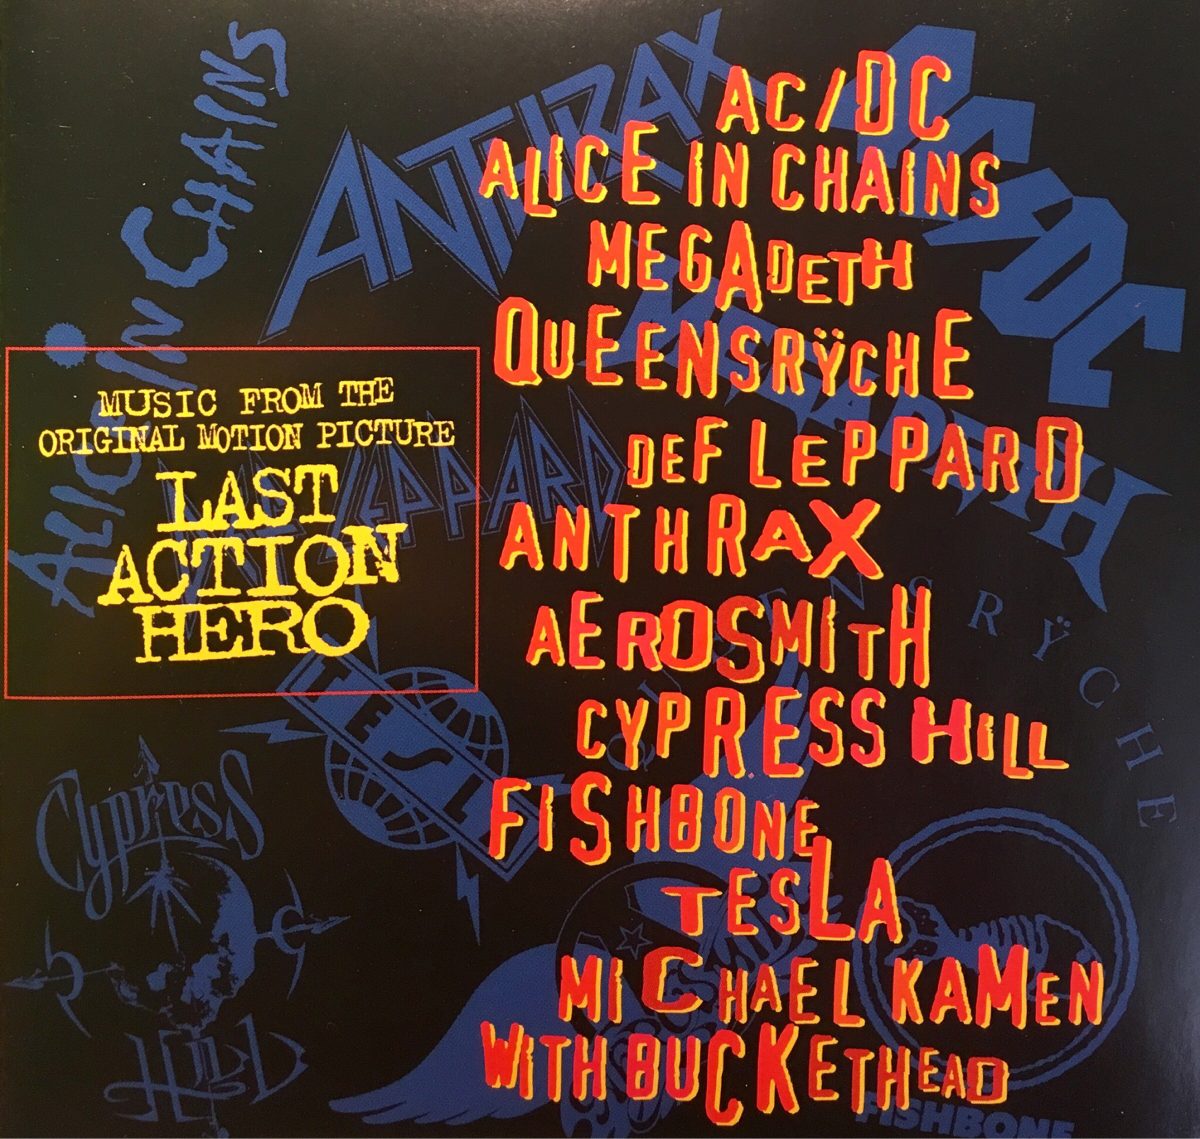 MUSIC FROM THE
ORIGINAL MOTION PICTURE
LAST
ACTION
HERO
AC/DC
ALICE IN CHAINS
MEGADETH
QUEENSRŸCHE
DEF LEPPARD
ANTHRAX
AEROSMITH
CYPRESS HILL
FISHBONE
TESLA
MICHAEL KAMEN
WITH BUCKETHEAD
ALICE IN CHAINS
ANTHRAX
AC/DC
MEGADETH
DEF LEPPARD
QUEENSRŸCHE
TESLA
CYPRESS
HILL
AEROSMITH
FISHBONE